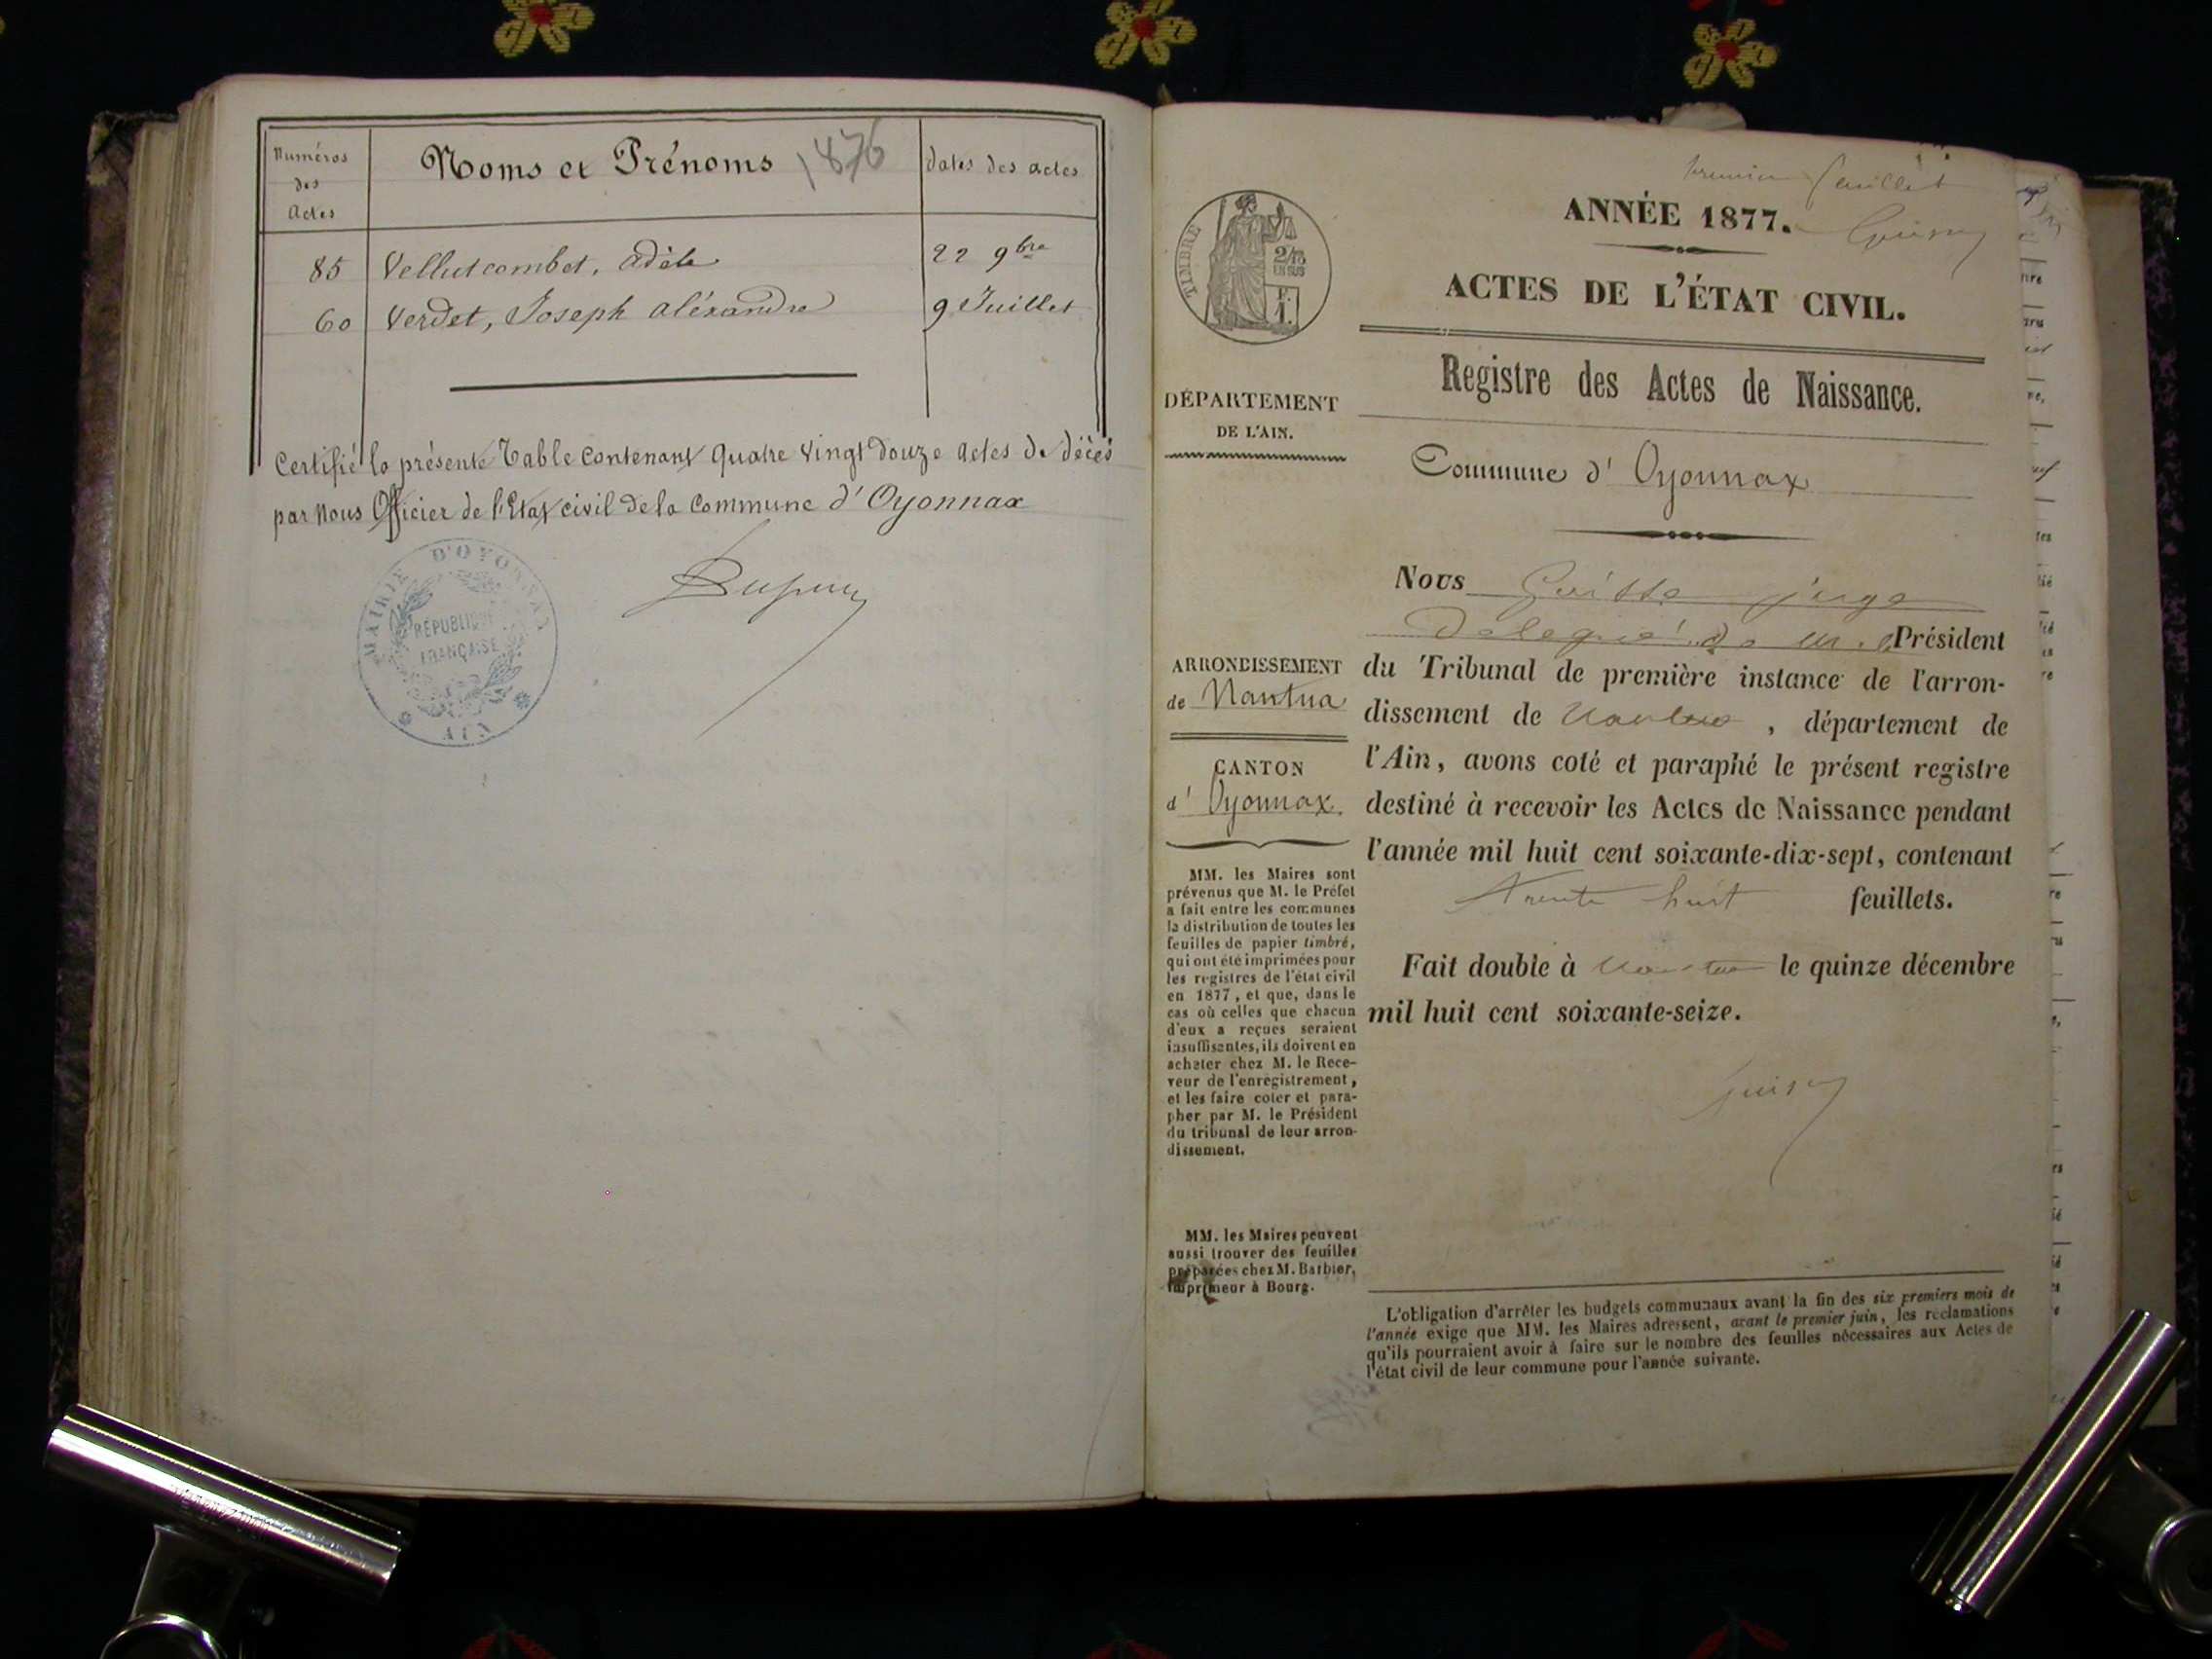 Numéros
des
Actes
Noms et Prénoms
1876
dates des actes
85 Vellutcombet, adèle 22 9bre
60 Verdet, Joseph aléxandre 9 Juillet
Certifié la présente Table contenant quatre vingt douze actes de décès
par nous Officier de l'Etat civil de la Commune d'Oyonnax
MAIRIE D'OYONNAX
RÉPUBLIQUE
FRANÇAISE
AIN
premier feuillet
ANNÉE 1877.
TIMBRE
2/10
EN SUS
F.
1.
ACTES DE L'ÉTAT CIVIL.
Registre des Actes de Naissance.
DÉPARTEMENT
DE L'AIN.
Commune d'Oyonnax
ARRONDISSEMENT
de Nantua
CANTON
d'Oyonnax.
MM. les Maires sont
prévenus que M. le Préfet
a fait entre les communes
la distribution de toutes les
feuilles de papier timbré,
qui ont été imprimées pour
les registres de l'état civil
en 1877, et que, dans le
cas où celles que chacun
d'eux a reçues seraient
insuffisantes, ils doivent en
acheter chez M. le Rece-
veur de l'enregistrement,
et les faire coter et para-
pher par M. le Président
du tribunal de leur arron-
dissement.
MM. les Maires peuvent
aussi trouver des feuilles
préparées chez M. Barbier,
imprimeur à Bourg.
Nous juge
délégué de M. le Président
du Tribunal de première instance de l'arron-
dissement de Nantua, département de
l'Ain, avons coté et paraphé le présent registre
destiné à recevoir les Actes de Naissance pendant
l'année mil huit cent soixante-dix-sept, contenant
trente huit feuillets.
Fait double à Nantua le quinze décembre
mil huit cent soixante-seize.
L'obligation d'arrêter les budgets communaux avant la fin des six premiers mois de
l'année exige que MM. les Maires adressent, avant le premier juin, les réclamations
qu'ils pourraient avoir à faire sur le nombre des feuilles nécessaires aux Actes de
l'état civil de leur commune pour l'année suivante.